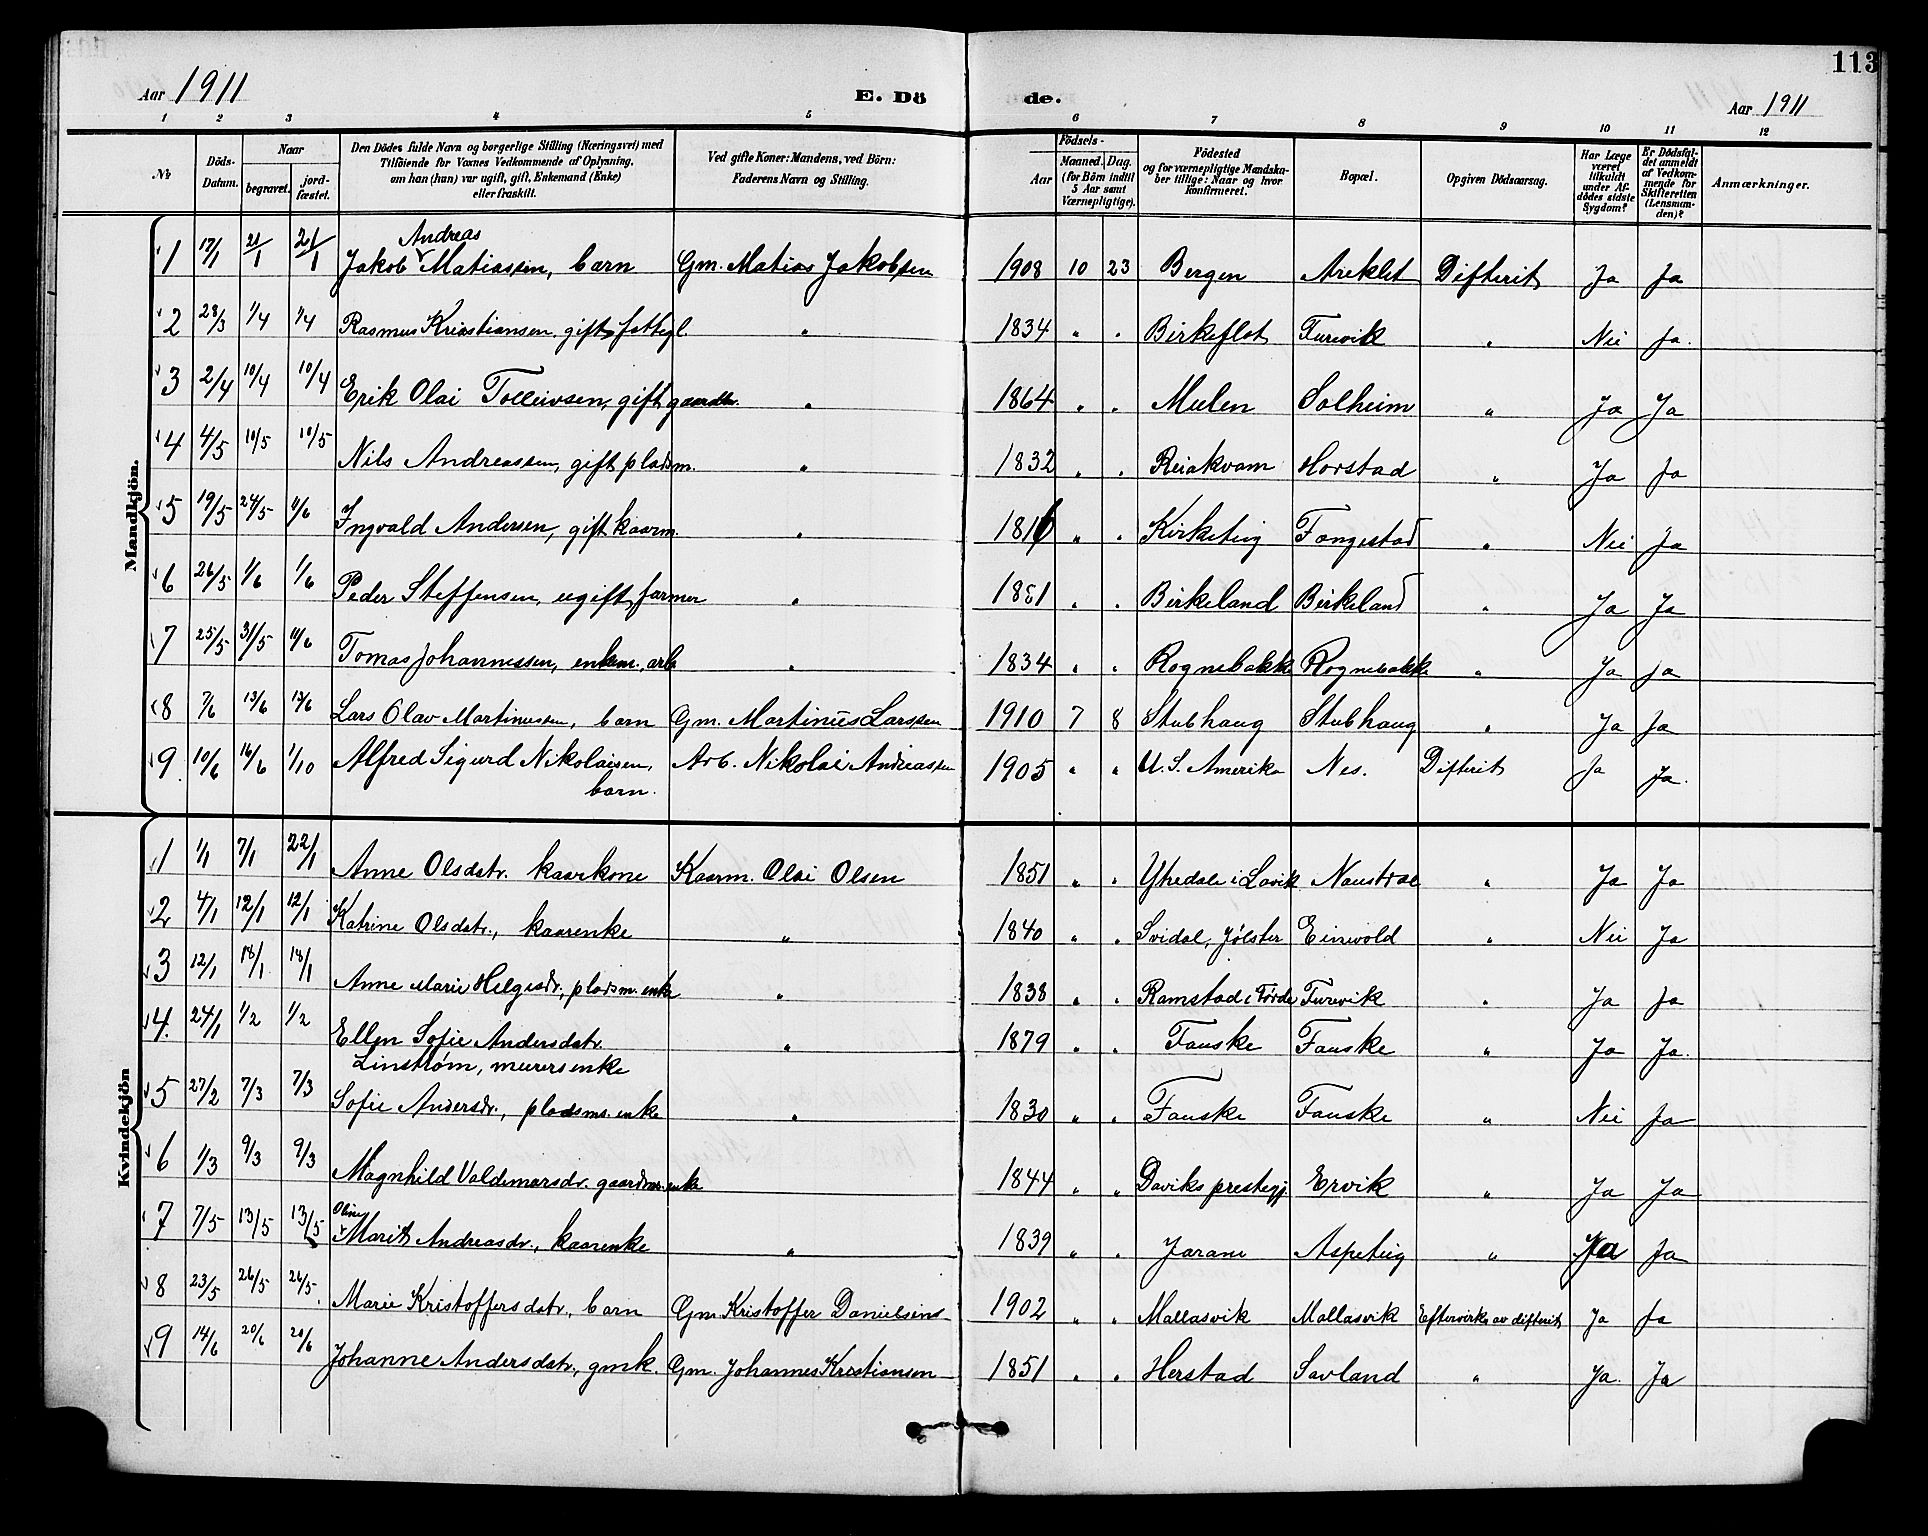 113
Aar 1911
E. Dö de.
Aar 1911
1 2 3 4 5 6 7 8 9 10 11 12
No
Döds-Datum.
Naar
begravet.
jordfæstet.
Den Dödes fulde Navn og borgerlige Stilling (Næringsvei) med Tilföiende for Voxnes Vedkommende af Oplysning, om han (hun) var ugift, gift, Enkemand (Enke) eller fraskilt.
Ved gifte Koner: Mandens, ved Börn: Faderens Navn og Stilling.
Födsels-
Aar
Maaned. Dag.
(for Börn indtil 5 Aar samt Værnepligtige).
Födested og for værnepligtige Mandskaber tillige: Naar og hvor konfirmeret.
Bopæl.
Opgiven Dödsaarsag.
Har Læge været tilkaldt under Afdödes sidste Sygdom?
Er Dödsfaldet anmeldt af Vedkommende for Skifteretten (Lensmanden)?
Anmærkninger.
Mandkjön.
1 17/1 21/1 21/1 Jakob Andreas Matiassen, barn Gm. Matias Jakobsen 1908 10 23 Bergen Areklet Difterit Ja Ja
2 28/3 1/4 1/4 Rasmus Kristiansen, gift, fattegl. " 1834 " " Birkeflot Furevik " Nei Ja.
3 2/4 10/4 10/4 Erik Olai Tolleivsen, gift gaardbr. " 1864 " " Mulen Solheim " Ja Ja
4 4/5 10/5 10/5 Nils Andreassen, gift pladsm. " 1832 " " Reiakvam Horstad " Ja Ja
5 19/5 24/5 11/6 Ingvald Andersen, gift kaarm. " 1816 " " Kirketeig Fongestad " Nei Ja
6 26/5 1/6 1/6 Peder Steffensen, ugift, farmer " 1881 " " Birkeland Birkeland " Ja Ja
7 25/5 31/5 11/6 Tomas Johannessen, enkem., arb. " 1834 " " Rognebakke Rognebakke " Ja Ja
8 7/6 13/6 13/6 Lars Olav Martinussen, barn Gm. Martinus Larssen 1910 7 8 Stubhaug Stubhaug " Ja Ja
9 10/6 16/6 1/10 Alfred Sigurd Nikolaisen, barn. Arb. Nikolai Andreassen 1905 " " U. S. Amerika Nes. Difterit Ja Ja.
Kvindekjön
1 1/1 7/1 22/1 Anne Olsdatr. kaarkone Kaarm. Olai Olsen 1851 " " Ytredale i Lavik Naustdal " Ja Ja
2 4/1 12/1 12/1 Katrine Olsdatr., kaarenke " 1840 " " Svidal, Jølster Einevold " Nei Ja
3 12/1 18/1 18/1 Anne Marie Helgesdr., pladsm. enke " 1838 " " Ramstad i Førde Furevik " Ja Ja
4. 24/1 1/2 1/2 Ellen Sofie Andersdatr. Linstrøm, murersenke " 1879 " " Fauske Fauske " Ja Ja.
5 27/2 7/3 7/3 Sofie Andersdr., pladsms. enke " 1830 " " Fauske Fauske " Nei Ja
6 1/3 9/3 9/3 Magnhild Valdemarsdr. gaardm. enke 1844 " " Daviks prestegj. Ervik " Ja Ja
7 7/5 13/5 13/5 Marit Oline Andreasdr., kaarenke " 1839 " " Jarane Aspeteig " Ja Ja
8 23/5 26/5 26/5 Marie Kristoffersdatr., barn Gm. Kristoffer Danielsens 1902 " " Mallasvik Mallasvik Eftervirkn. av difterit Ja Ja
9 14/6 20/6 20/6 Johanne Andersdatr., gmk. Gm. Johannes Kristiansen 1851 " " Herstad Savland " Ja. Ja